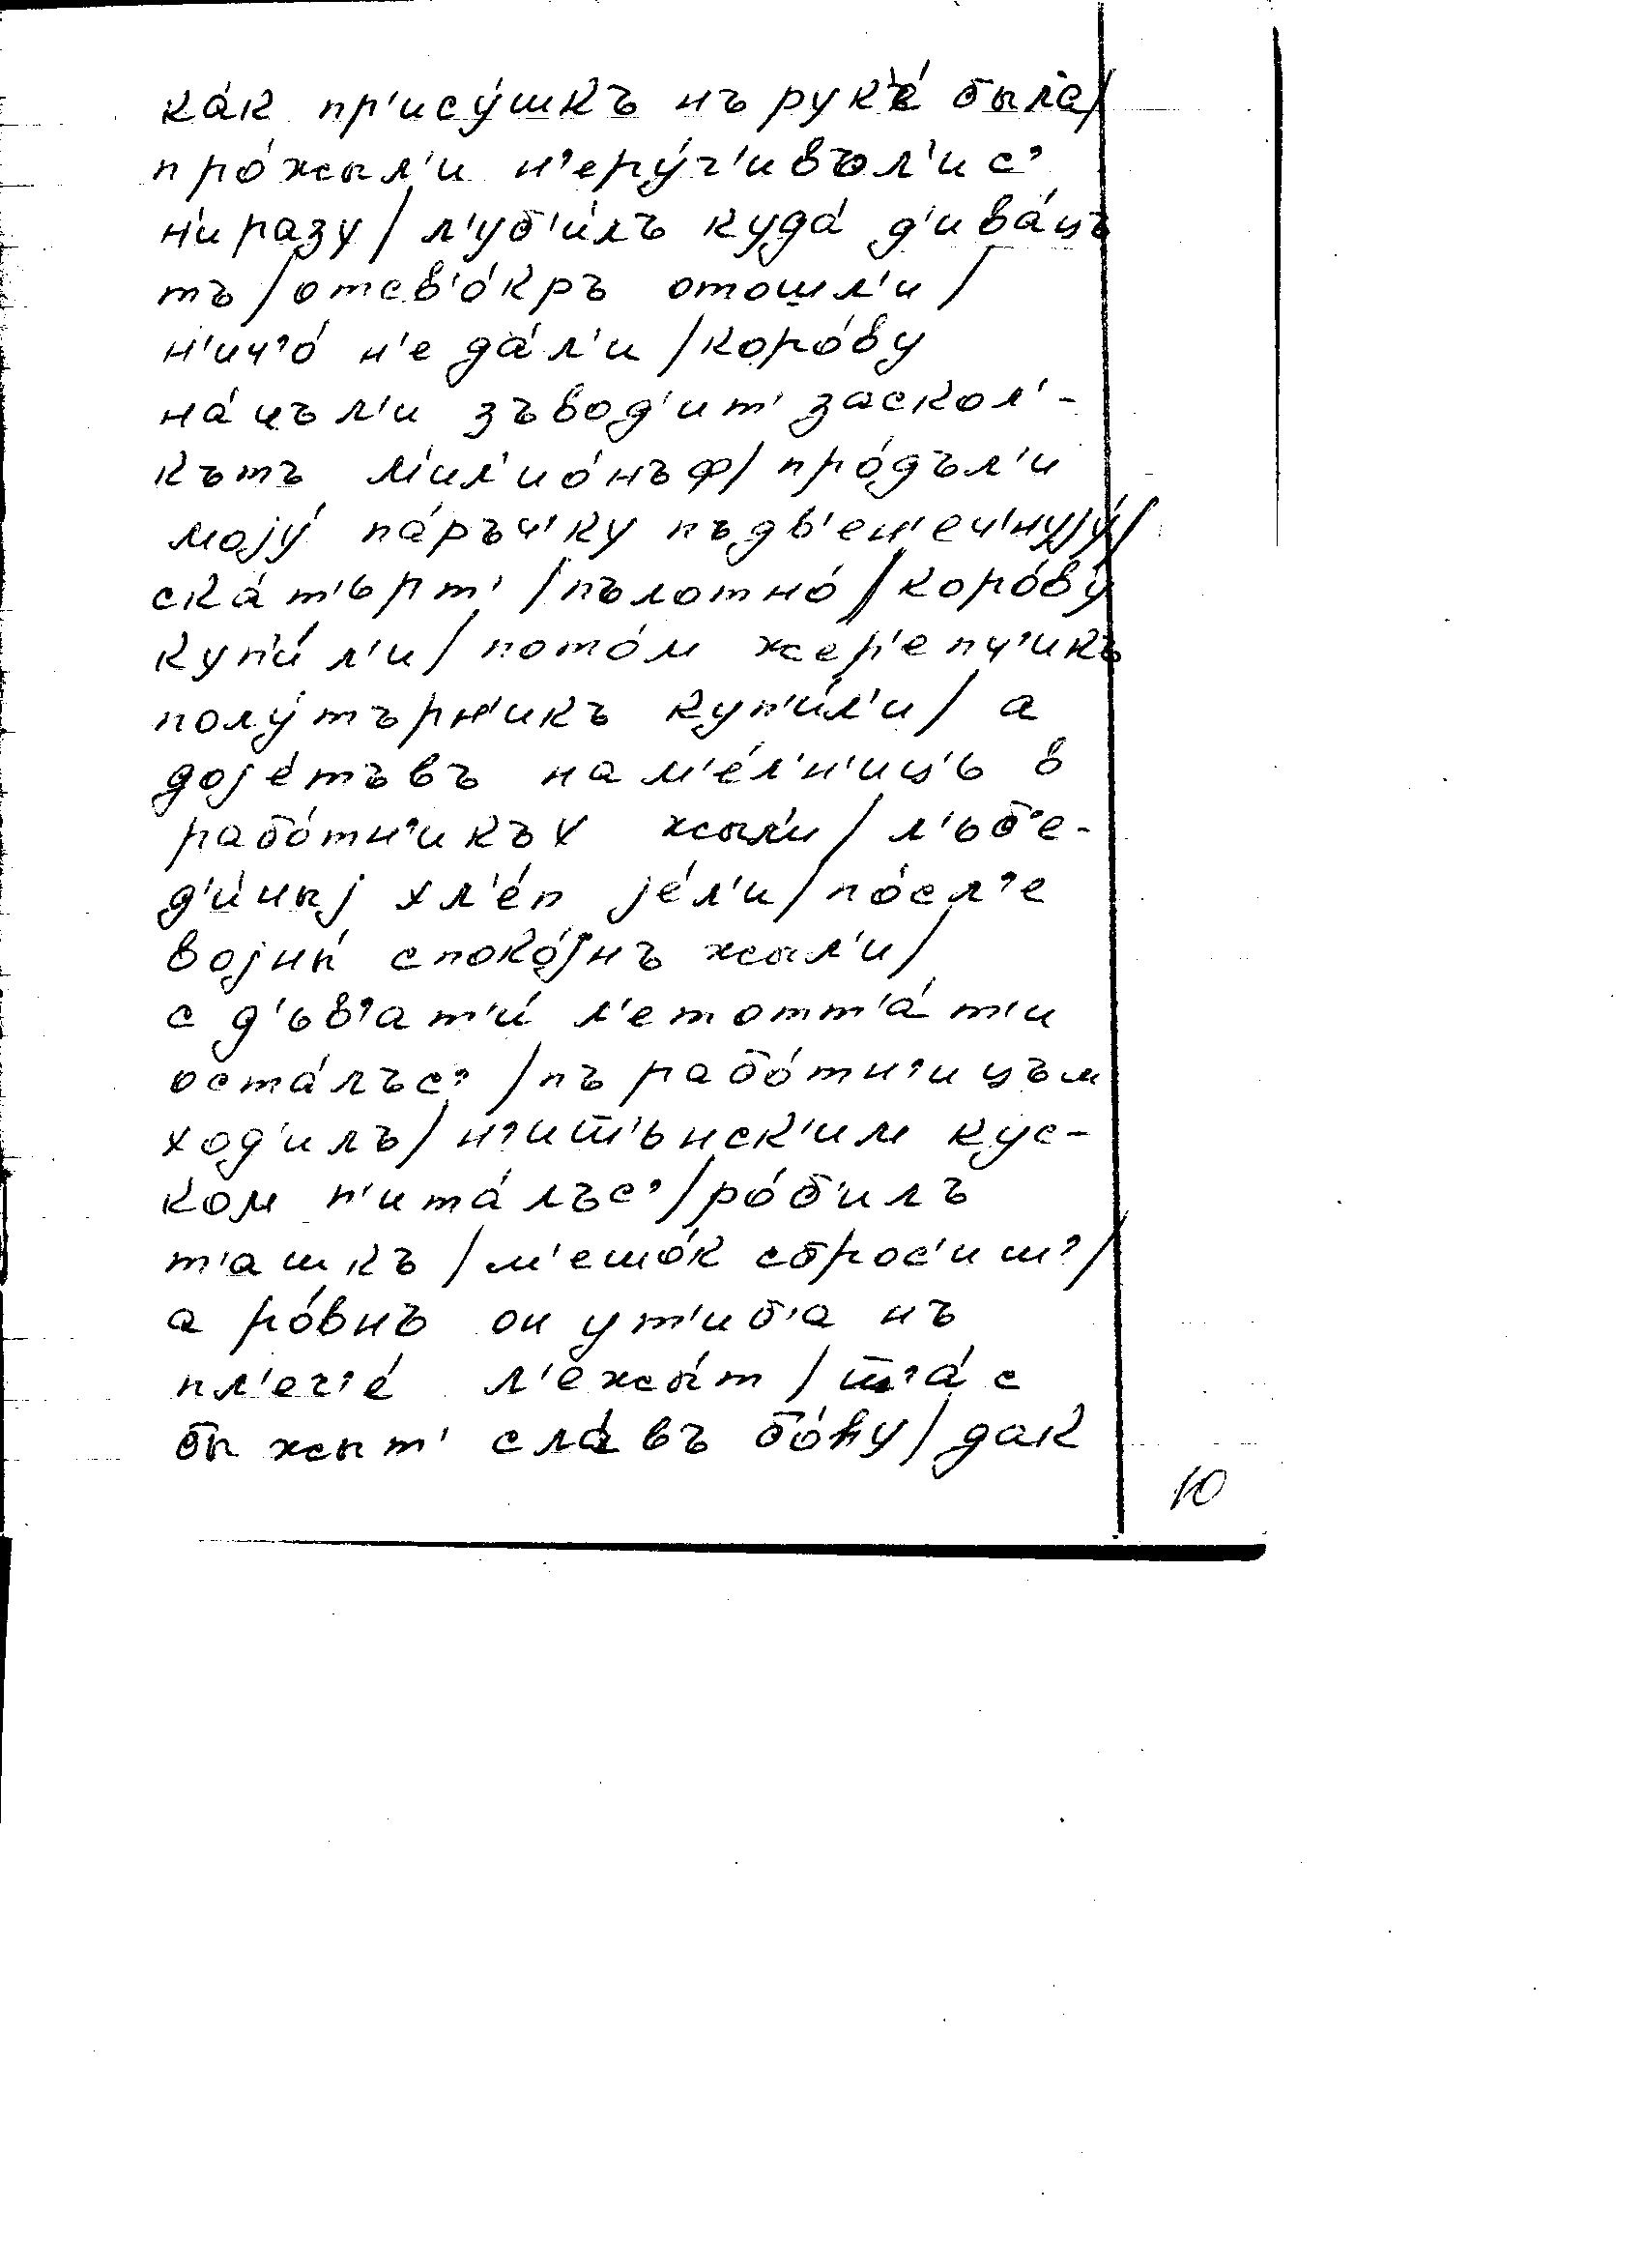 ка́к пр'ису́шкъ нъ рук'е́ была/
про́жыл'и н'еру́г'ивъл'ис'
н'иразу/ л'уб'и́лъ куда́ д'ива́цъ
тъ/отсв'о́кръ отошл'и/
н'ич'о́ н'е да́л'и/коро́ву
на́чъл'и зъвод'ит' заскол'-
кътъ м'ил'ио́нъф/ про́дъл'и
моjу́ па́ръч'ку пъдв'ен'еч'нуjу́/
ска́т'ьрт'/пълотно́/коро́ву
куп'и́л'и/ пото́м жер'епч'икъ
полу́търн'икъ куп'и́л'и/ а
доjе́тъвъ на м'е́л'н'иц'ь в
рабо́тн'икъх жыл'и/ л'ьб'е-
д'и́ныj хл'е́п jе́л'и/по́сл'е
воjны́ споко́jнъ жыл'и/
с д'ьв'ат'и́ л'етотт'а́т'и
оста́лъс'/пъ рабо́тн'ицъм
ход'илъ/н'ит̅'ьнск'им кус-
ком п'ита́лъс'/ро́б'илъ
т'ашкъ/м'ешо́к сброс'иш'/
а ро́внъ он у т'иб'а нъ
пл'еч'е́ л'ежы́т/ш'а́с
бы жыт' сла́въ бо́hу/дак
10